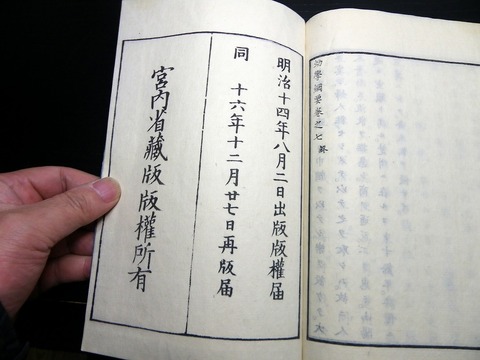 幼學綱要卷之七 終
明治十四年八月二日出版版權届
同 十六年十二月廿七日再版届
宮内省藏版版權所有